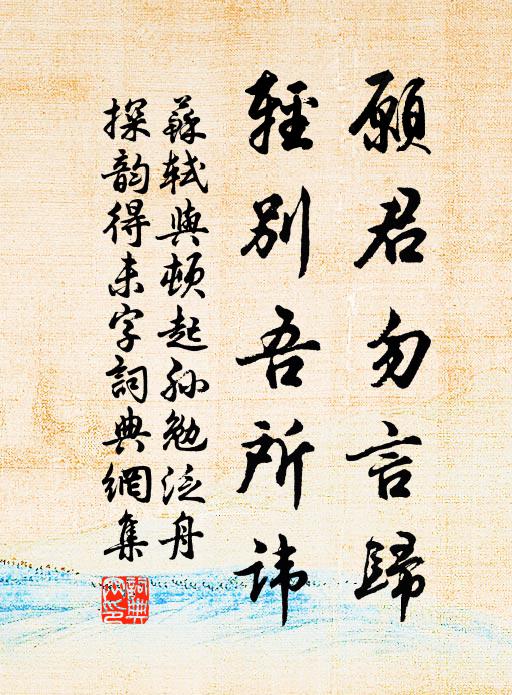 願君勿言歸
輕別吾所諱
蘇軾與頓起孫勉泛舟
探韵得未字詞典網集